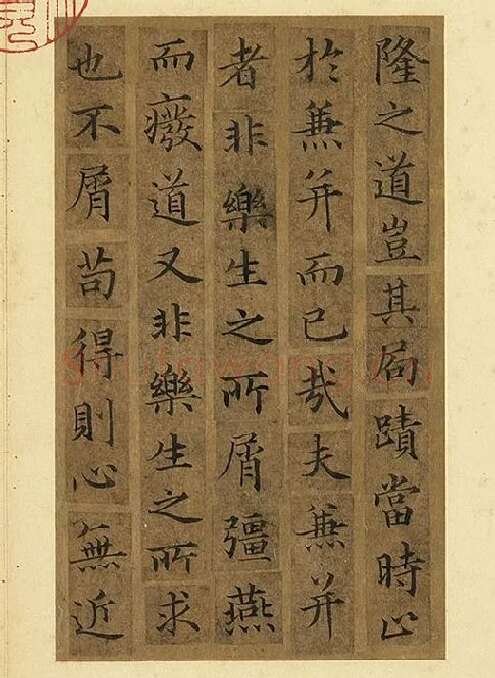 隆之道豈其局蹟當時止
於蒹并而已㢤夫蒹并
者非樂生之所屑彊燕
而癈道又非樂生之所求
也不屑苟得則心無近